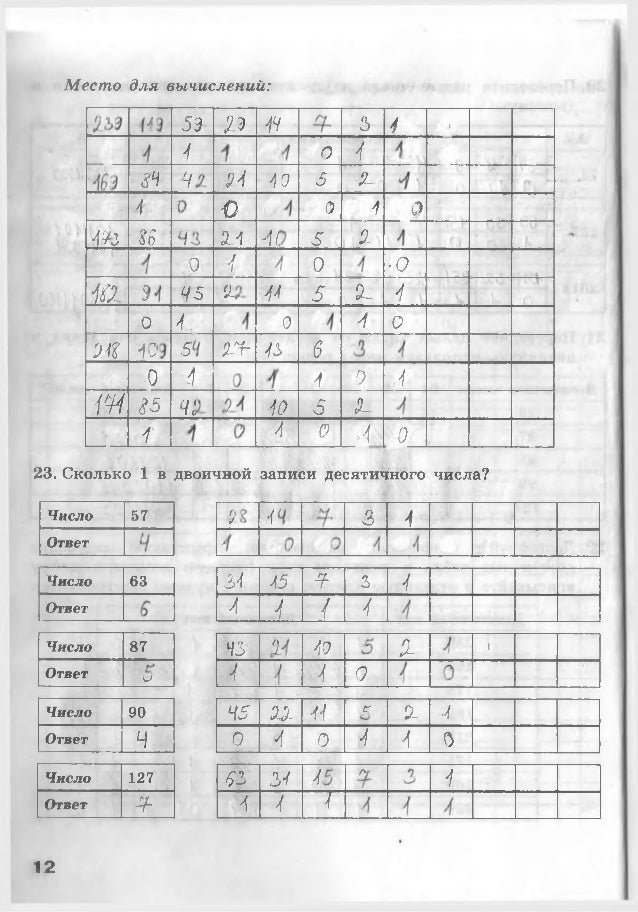 Место для вычислений:
239 119 59 29 14 7 3 1
1 1 1 1 0 1 1
169 84 42 21 10 5 2 1
1 0 0 1 0 1 0
173 86 43 21 10 5 2 1
1 0 1 1 0 1 0
182 91 45 22 11 5 2 1
0 1 1 0 1 1 0
218 109 54 27 13 6 3 1
0 1 0 1 1 0 1
171 85 42 21 10 5 2 1
1 1 0 1 0 1 0
23. Сколько 1 в двоичной записи десятичного числа?
Число 57 28 14 7 3 1
Ответ 4 1 0 0 1 1
Число 63 31 15 7 3 1
Ответ 6 1 1 1 1 1
Число 87 43 21 10 5 2 1
Ответ 5 1 1 1 0 1 0
Число 90 45 22 11 5 2 1
Ответ 4 0 1 0 1 1 0
Число 127 63 31 15 7 3 1
Ответ 7 1 1 1 1 1 1
12